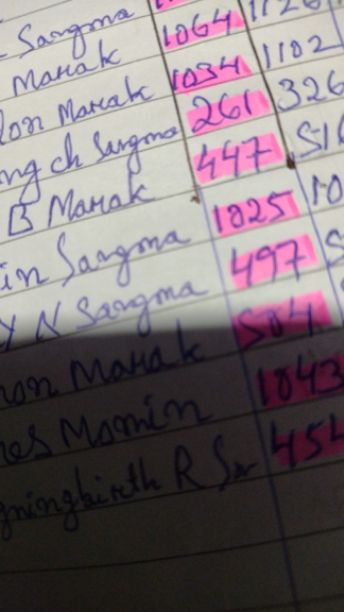 Sangma 1064 112
Marak 1034 1102
lon Marak 261 326
ng ch Sangma 447 516
B Marak 1025 10
in Sangma 497 5
N Sangma 504
on Marak 1043
es Momin 454
gningbirth R S